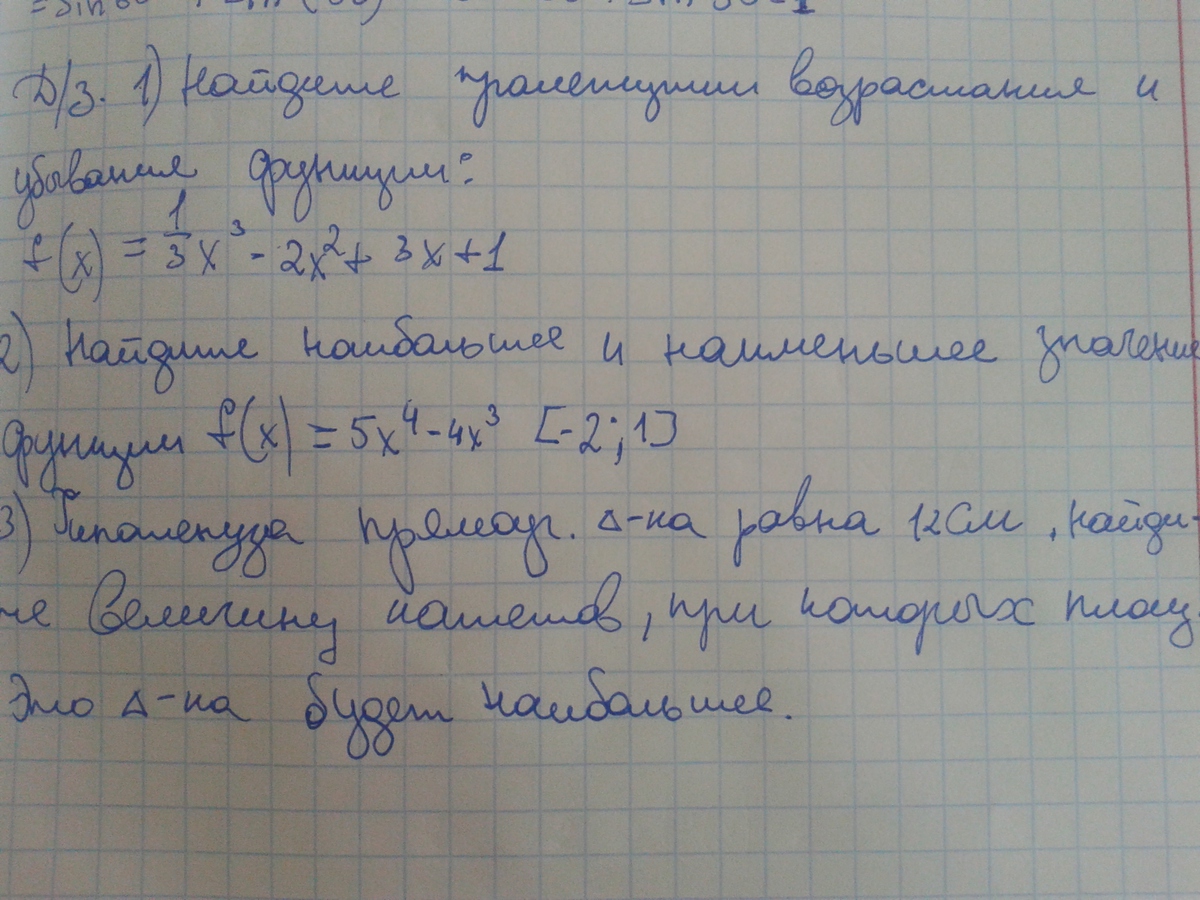 Д/з. 1) Найдите промежутки возрастания и
убывания функции:
f(x) = 1/3 x³ - 2x² + 3x + 1
2) Найдите наибольшее и наименьшее значение
функции f(x) = 5x⁴ - 4x³ [-2; 1]
3) Гипотенуза прямоуг. Δ-ка равна 12 см, найди-
те величину катетов, при которых площ.
это Δ-ка будет наибольшее.